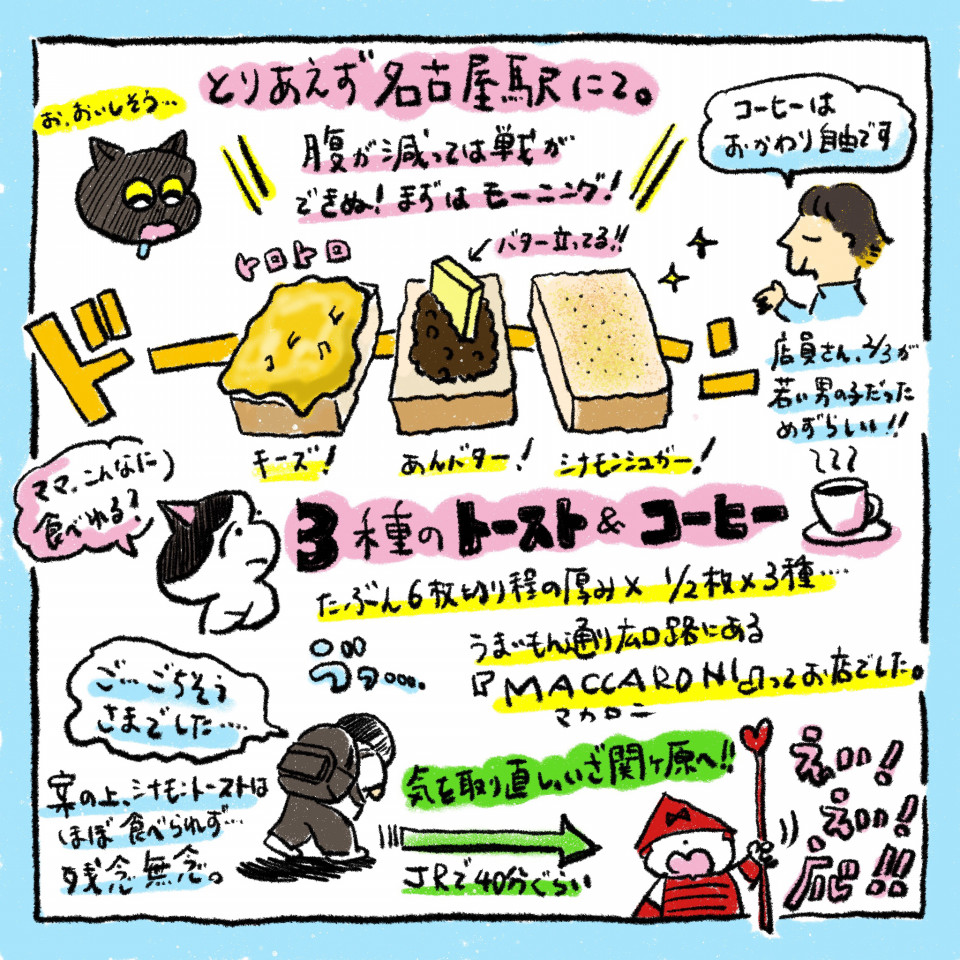 とりあえず名古屋駅にて。
お、おいしそう…
コーヒーは
おかわり自由です
腹が減っては戦が
できぬ!まずはモーニング!
バター立ってる!!
トロトロ
ドーーン
店員さん、2/3が
若い男の子だった
めずらしい!!
チーズ!
あんバター!
シナモンシュガー!
ママ、こんなに
食べれる?
3種のトースト&コーヒー
たぶん6枚切り程の厚み×1/2枚×3種…
うまいもん通り広口路にある
『MACCARONI』ってお店でした。
マカロニ
うぷっ…
ご…ごちそう
さまでした…
案の上、シナモントーストは
ほぼ食べられず…
残念無念。
気を取り直し、いざ関ヶ原へ!!
JRで40分ぐらい
えい!
えい!
応!!